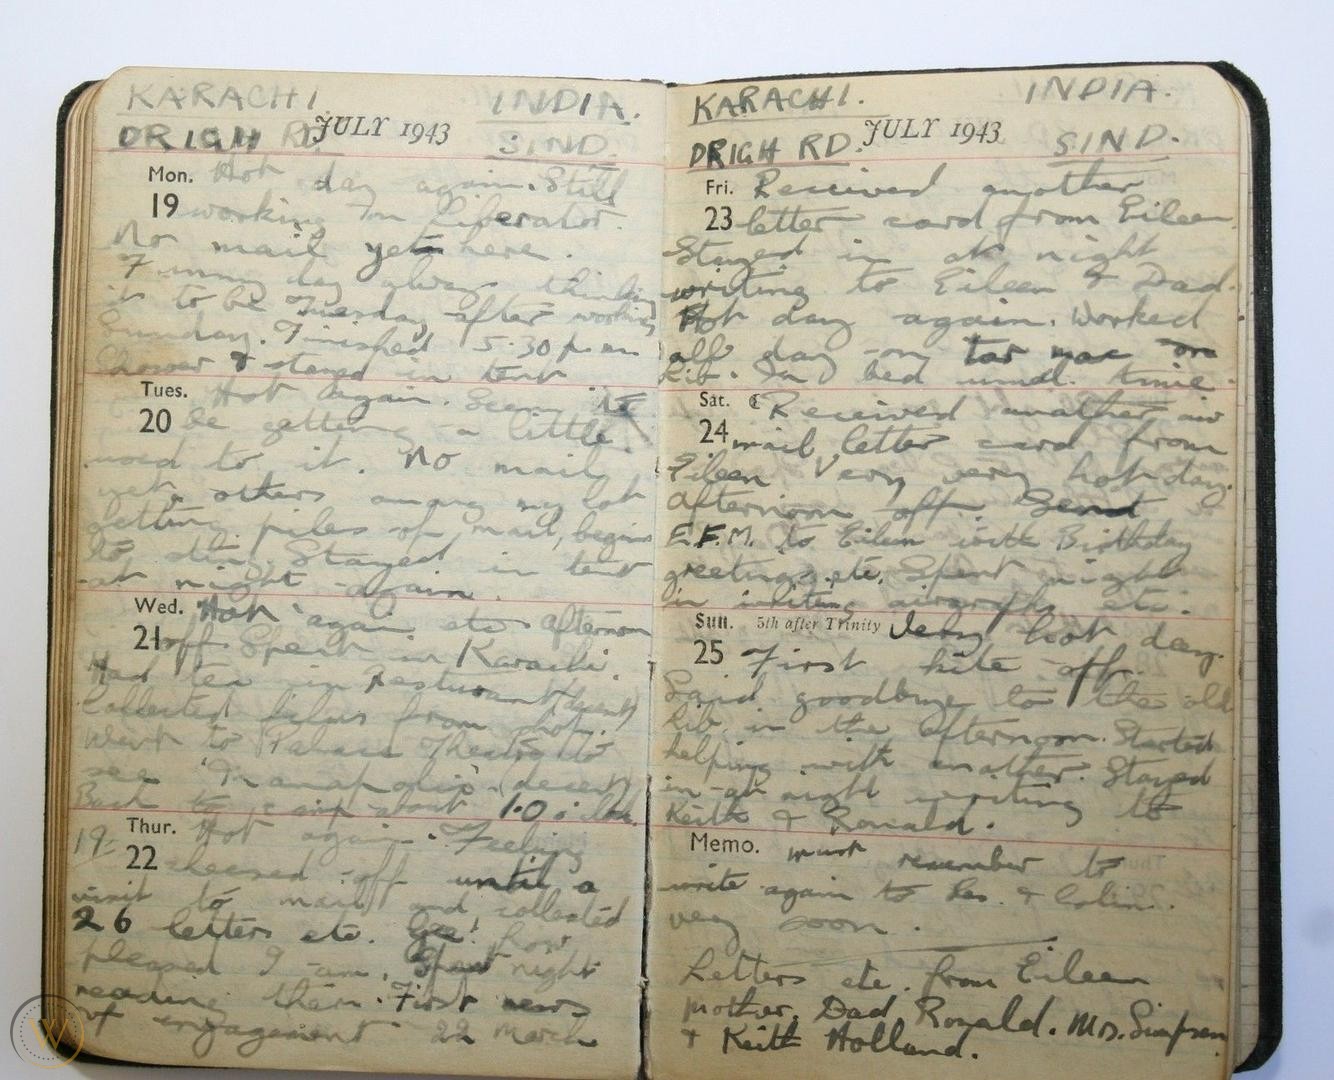 KARACHI. INDIA.
DRIGH RD. JULY 1943 SIND.
Mon. Hot day again. Still
19 working on Liberator.
No mail yet here.
Funny day always thinking
it to be Tuesday after working
Sunday. Finished 5.30 pm
Shower & stayed in tent
Tues. Hot again. Seem to
20 be getting a little
used to it. No mail
yet, others among my lot
getting piles of mail, begins
to Stayed in tent
at night again.
Wed. Hot again etc afternoon
21 off Spent in Karachi.
Had tea in Resturant (decent)
Collected films from shop.
Went to Palace Theatre to
see (decent)
Back to camp about 1.0 o'clock.
Thur. Hot again. Feeling
19:
22 cheesed off until a
visit to mail and collected
26 letters etc. Gee! how
pleased I am. Spent night
reading them. First news
of engagement 22 March
KARACHI. INDIA.
DRIGH RD. JULY 1943 SIND.
Fri. Received another
23 letter card from Eileen
Stayed in at night
writing to Eileen & Dad.
Hot day again. Worked
all day on tar mac on
Lib. In bed usual time.
Sat. Received another air
24 mail letter card from
Eileen Very very hot day.
Afternoon off Send
E.F.M. to Eileen with Birthday
greetings etc. Spent night
in writing airgraphs etc.
Sun. 5th after Trinity Very hot day.
25 First kite off.
Said goodbye to the old
Lib. in the afternoon. Started
helping with another. Stayed
in at night writing to
Keith & Ronald.
Memo. must remember to
write again to Les. & Colin.
very soon.
Letters etc. from Eileen
Mother, Dad Ronald. Mrs. Simpson
& Keith Holland.
W